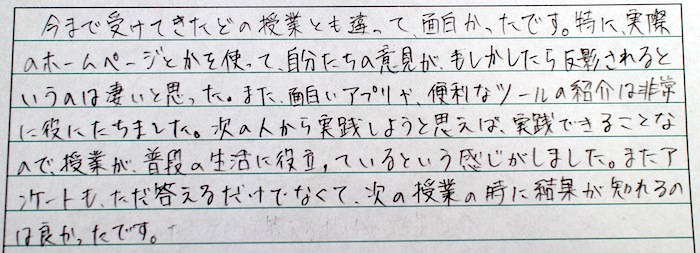 今まで受けてきたどの授業とも違って、面白かったです。特に、実際
のホームページとかを使って、自分たちの意見が、もしかしたら反映されると
いうのは凄いと思った。また、面白いアプリや、便利なツールの紹介は非常
に役にたちました。次の人から実践しようと思えば、実践できることな
ので、授業が、普段の生活に役立っているという感じがしました。またア
ンケートも、ただ答えるだけでなくて、次の授業の時に結果が知れるの
は良かったです。